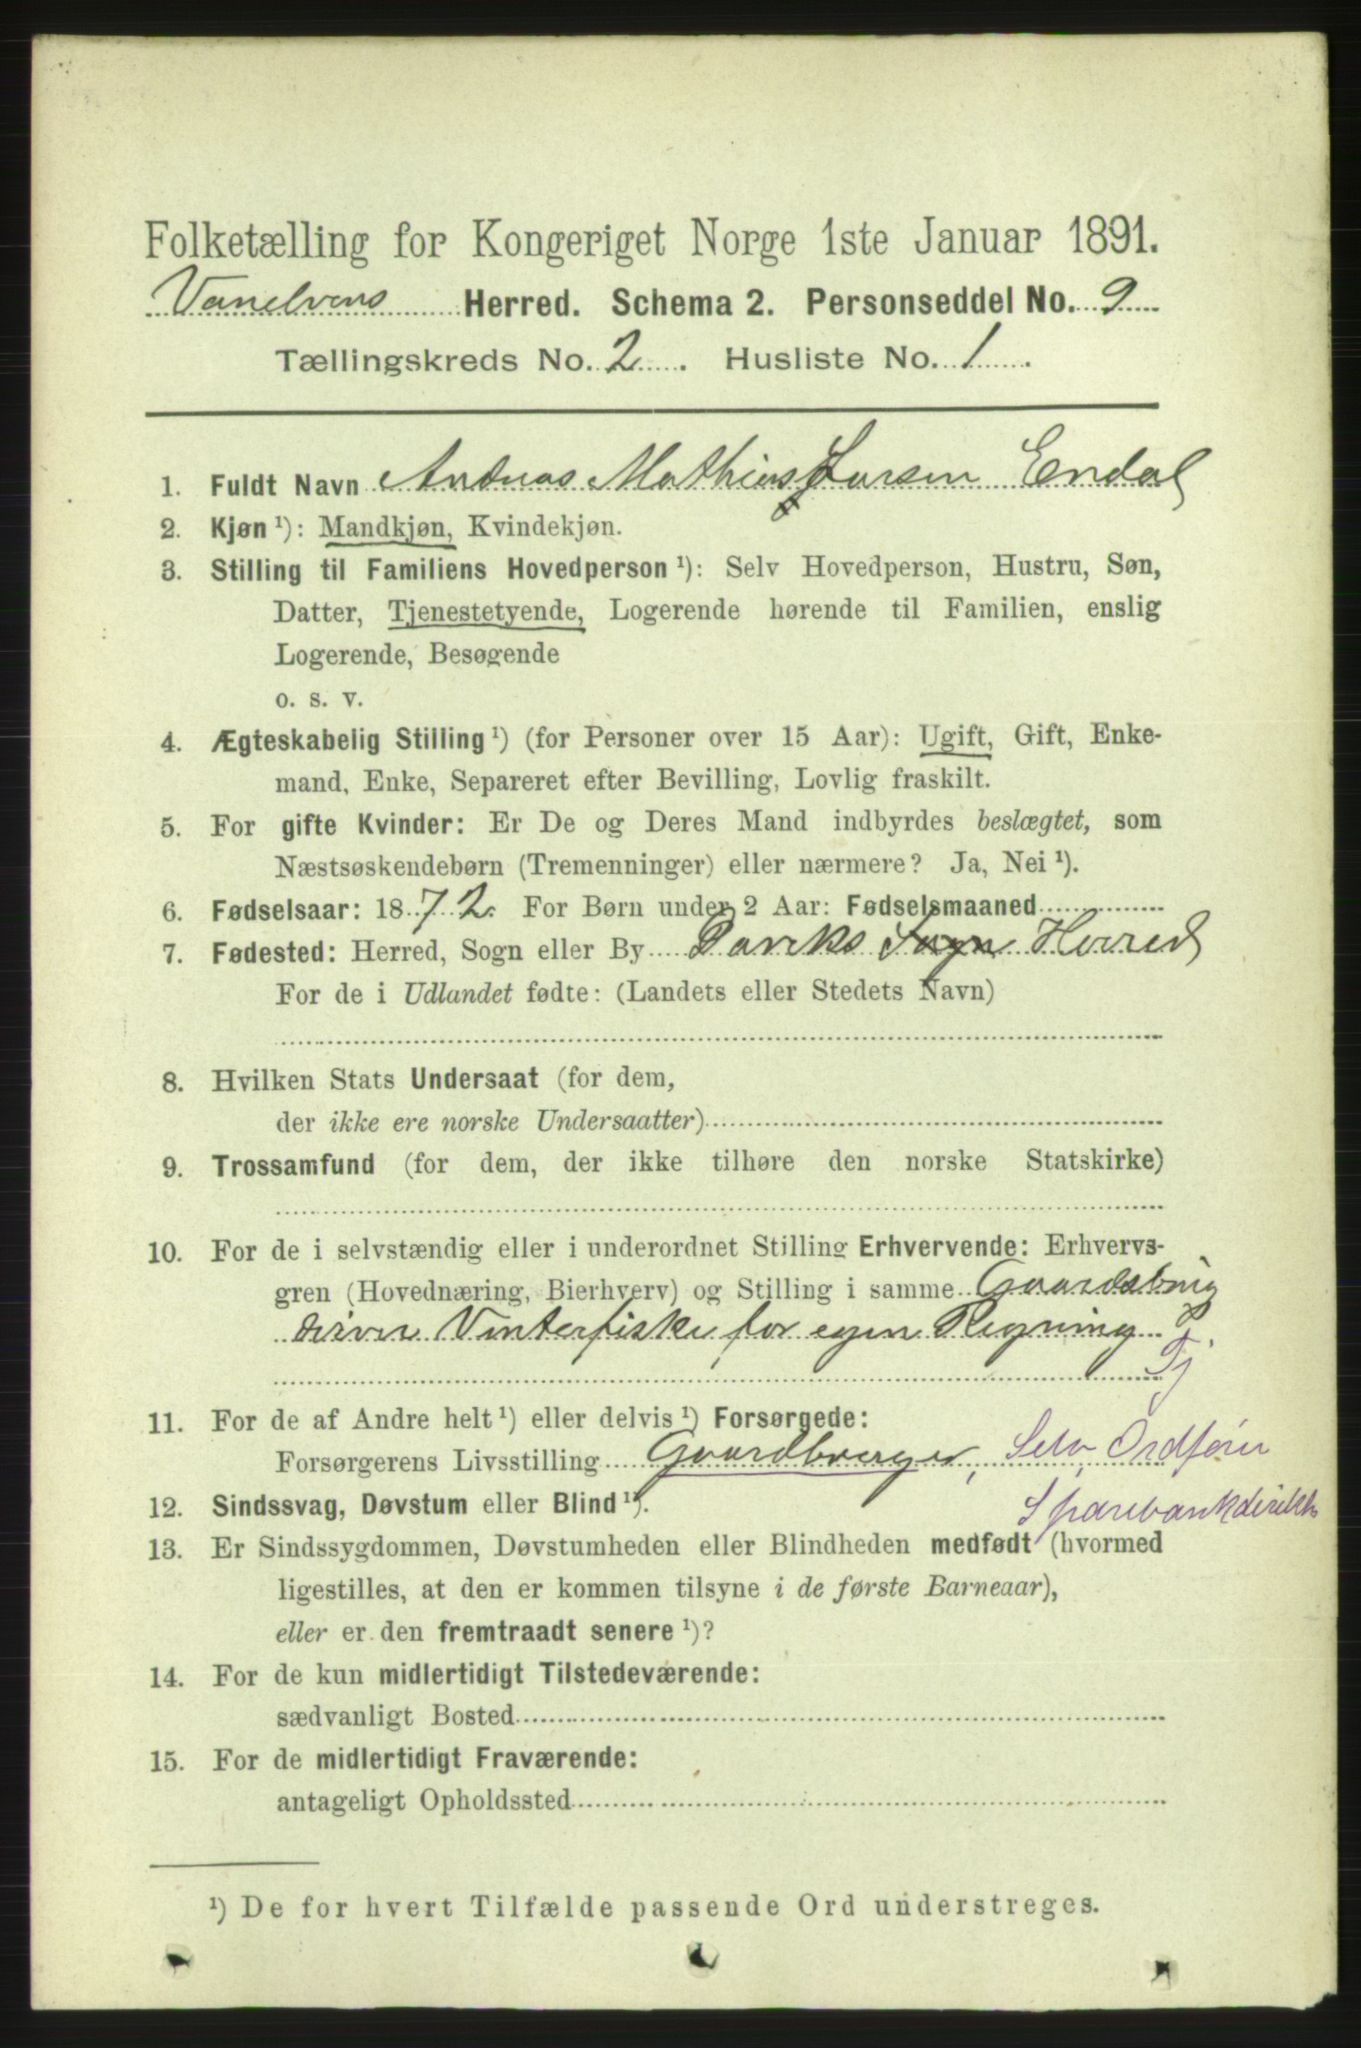 Folketælling for Kongeriget Norge 1ste Januar 1891.
Vanelvens Herred. Schema 2. Personseddel No. 9
Tællingskreds No. 2. Husliste No. 1.
1. Fuldt Navn Andreas Mathias Larsen Endal
2. Kjøn ¹): Mandkjøn, Kvindekjøn.
3. Stilling til Familiens Hovedperson ¹): Selv Hovedperson, Hustru, Søn,
Datter, Tjenestetyende, Logerende hørende til Familien, enslig
Logerende, Besøgende
o. s. v.
4. Ægteskabelig Stilling ¹) (for Personer over 15 Aar): Ugift, Gift, Enke-
mand, Enke, Separeret efter Bevilling, Lovlig fraskilt.
5. For gifte Kvinder: Er De og Deres Mand indbyrdes beslægtet, som
Næstsøskendebørn (Tremenninger) eller nærmere? Ja, Nei ¹).
6. Fødselsaar: 1872. For Børn under 2 Aar: Fødselsmaaned
7. Fødested: Herred, Sogn eller By Daviks Sogn Herred
For de i Udlandet fødte: (Landets eller Stedets Navn)
8. Hvilken Stats Undersaat (for dem,
der ikke ere norske Undersaatter)
9. Trossamfund (for dem, der ikke tilhøre den norske Statskirke)
10. For de i selvstændig eller i underordnet Stilling Erhvervende: Erhvervs-
gren (Hovednæring, Bierhverv) og Stilling i samme Gaardsbrug
driver Vinterfiske for egen Regning
Tj
11. For de af Andre helt ¹) eller delvis ¹) Forsørgede:
Forsørgerens Livsstilling Gaardbruger, Selv, Ordfører
Sparebankdirektr
12. Sindssvag, Døvstum eller Blind ¹).
13. Er Sindssygdommen, Døvstumheden eller Blindheden medfødt (hvormed
ligestilles, at den er kommen tilsyne i de første Barneaar),
eller er den fremtraadt senere ¹)?
14. For de kun midlertidigt Tilstedeværende:
sædvanligt Bosted
15. For de midlertidigt Fraværende:
antageligt Opholdssted
¹) De for hvert Tilfælde passende Ord understreges.